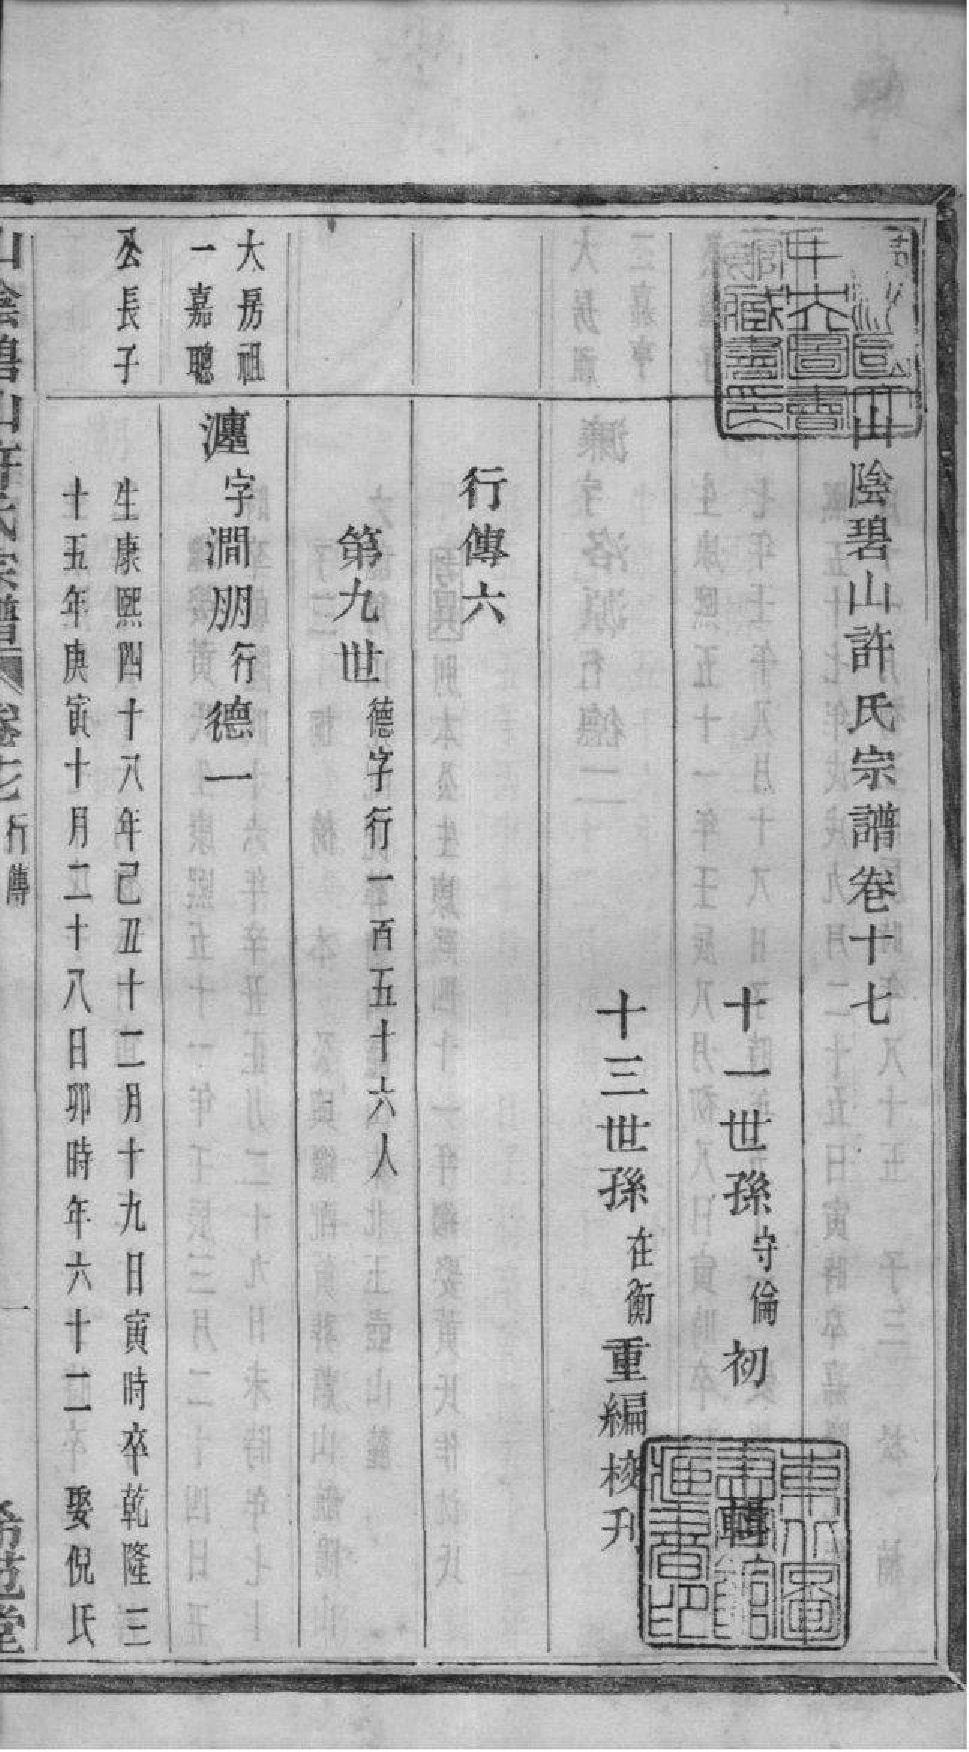 山陰碧山許氏宗譜卷十七
十一世孫守倫初輯
十三世孫在衡重編校刋
行傳六
第九世德字行一百五十六人
大房祖
一嘉聰
公長子
瀍字澗朋行德一
生康熙四十八年己丑十二月十九日寅時卒乾隆三
十五年庚寅十月二十八日卯時年六十二娶倪氏
山陰碧山許氏宗譜 卷十七行傳 一